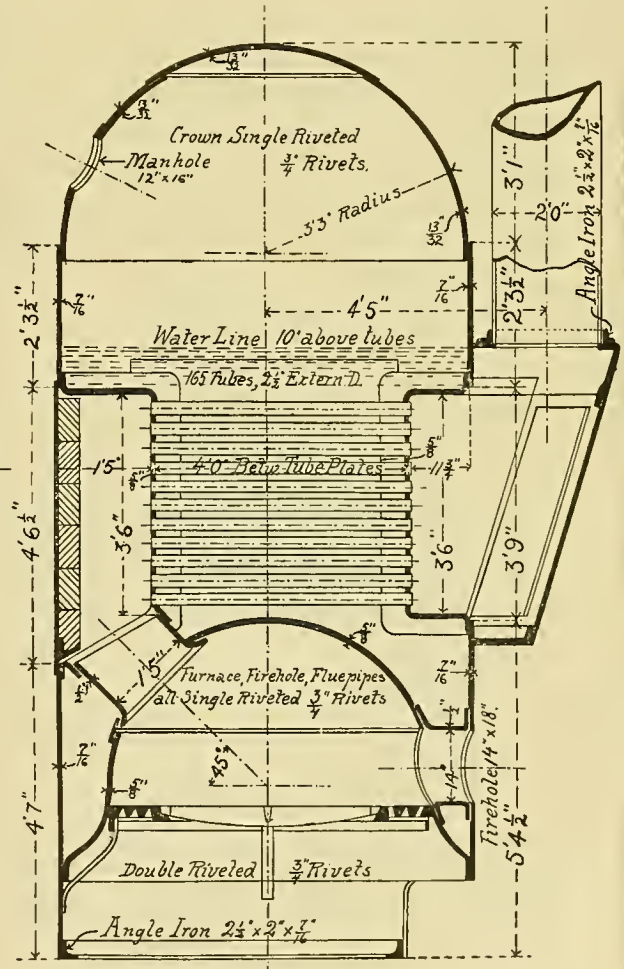 13/32"
13/32"
Crown Single Riveted
3/4" Rivets.
Manhole
12" x 16"
3'3" Radius
13/32"
3'1"
2'0"
Angle Iron 2 1/2" x 2" x 7/16"
2' 3 1/2"
7/16"
7/16"
4'5"
2' 3 1/2"
Water Line 10" above tubes
165 Tubes, 2 1/2" Extern D.
1'5"
5/8"
4'0" Betw. Tube Plates
5/8"
11 3/4"
4' 6 1/2"
3'6"
3'6"
3'9"
5/8"
1'5"
1/2"
Furnace, Firehole, Fluepipes
all Single Riveted 3/4" Rivets
7/16"
1/2"
7/16"
45°
14"
Firehole 14" x 18".
5/8"
4'7"
5' 4 1/2"
Double Riveted 3/4" Rivets
Angle Iron 2 1/2" x 2" x 7/16"